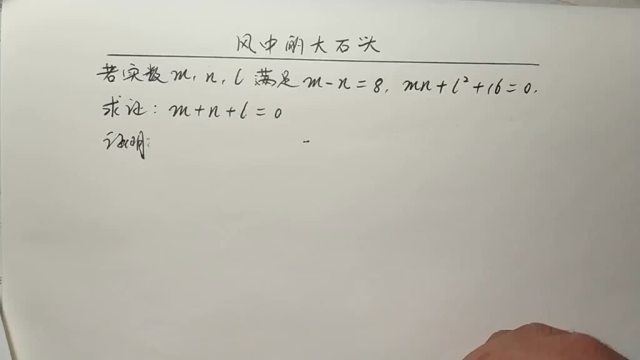 风中的大石头
若实数m, n, l 满足 m-n=8, mn+l²+16=0.
求证: m+n+l=0
证明: